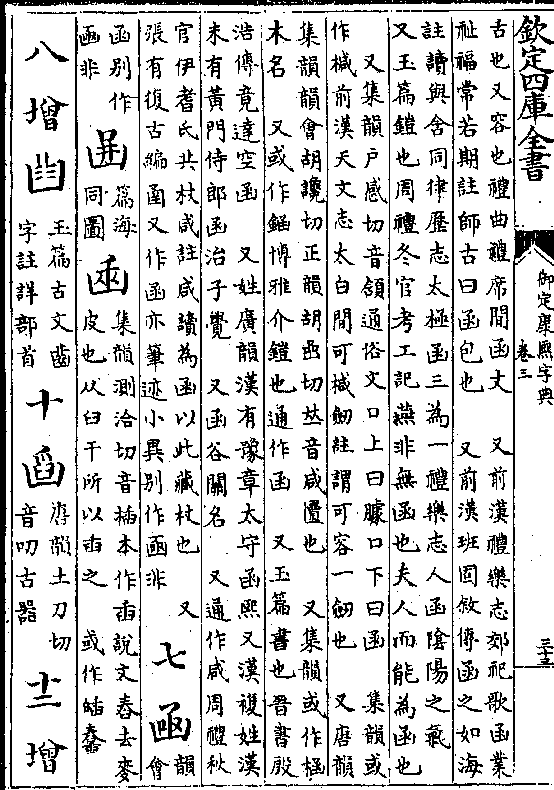 欽定四庫全書
御定康熙字典
卷三
三十三
古也又容也禮曲禮席間函丈 又前漢禮樂志郊祀歌函業
祉福常若期註師古曰函包也 又前漢班固敘傳函之如海
註讀與含同律歷志太極函三為一禮樂志人函陰陽之氣
又玉篇鎧也周禮冬官考工記燕非無函也夫人而能為函也
又集韻戶感切音頷通俗文口上曰臄口下曰函 集韻或
作椷前漢天文志太白閒可椷劒註謂可容一劒也 又唐韻
集韻韻會胡讒切正韻胡嵒切𠀤音咸匱也 又集韻或作椷
木名 又或作 博雅介鎧也通作函 又玉篇書也晉書殷
浩傳竟達空函 又姓廣韻漢有豫章太守函熙又漢複姓漢
末有黃門侍郎函治子覺 又函谷關名 又通作咸周禮秋
官伊耆氏共杖咸註咸讀為函以此藏杖也 又
張有復古編圅又作函亦筆迹小異別作凾非
七 凾 韻會
函別作
凾非
篇海
同圖
集韻測洽切音插本作臿說文舂去麥
皮也从臼干所以臿之 或作
八 增
玉篇古文齒
字註詳部首
十
唐韻土刀切
音叨古器
十二 增